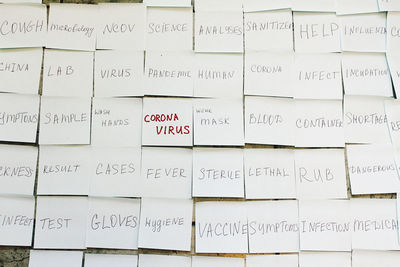 COUGH
microfology
NCOV
SCIENCE
ANALYSES
SANITIZER
HELP
INFLUENZA
CHINA
LAB
VIRUS
PANDEMIC
HUMAN
CORONA
INFECT
INCUBATION
SYMPTOMS
SAMPLE
WASH
HANDS
CORONA
VIRUS
WEAR
MASK
BLOOD
CONTAINER
SHORTAGE
SICKNESS
RESULT
CASES
FEVER
STERILE
LETHAL
RUB
DANGEROUS
INFECT
TEST
GLOVES
HYGIENE
VACCINE
SYMPTOMS
INFECTION
MEDICAL